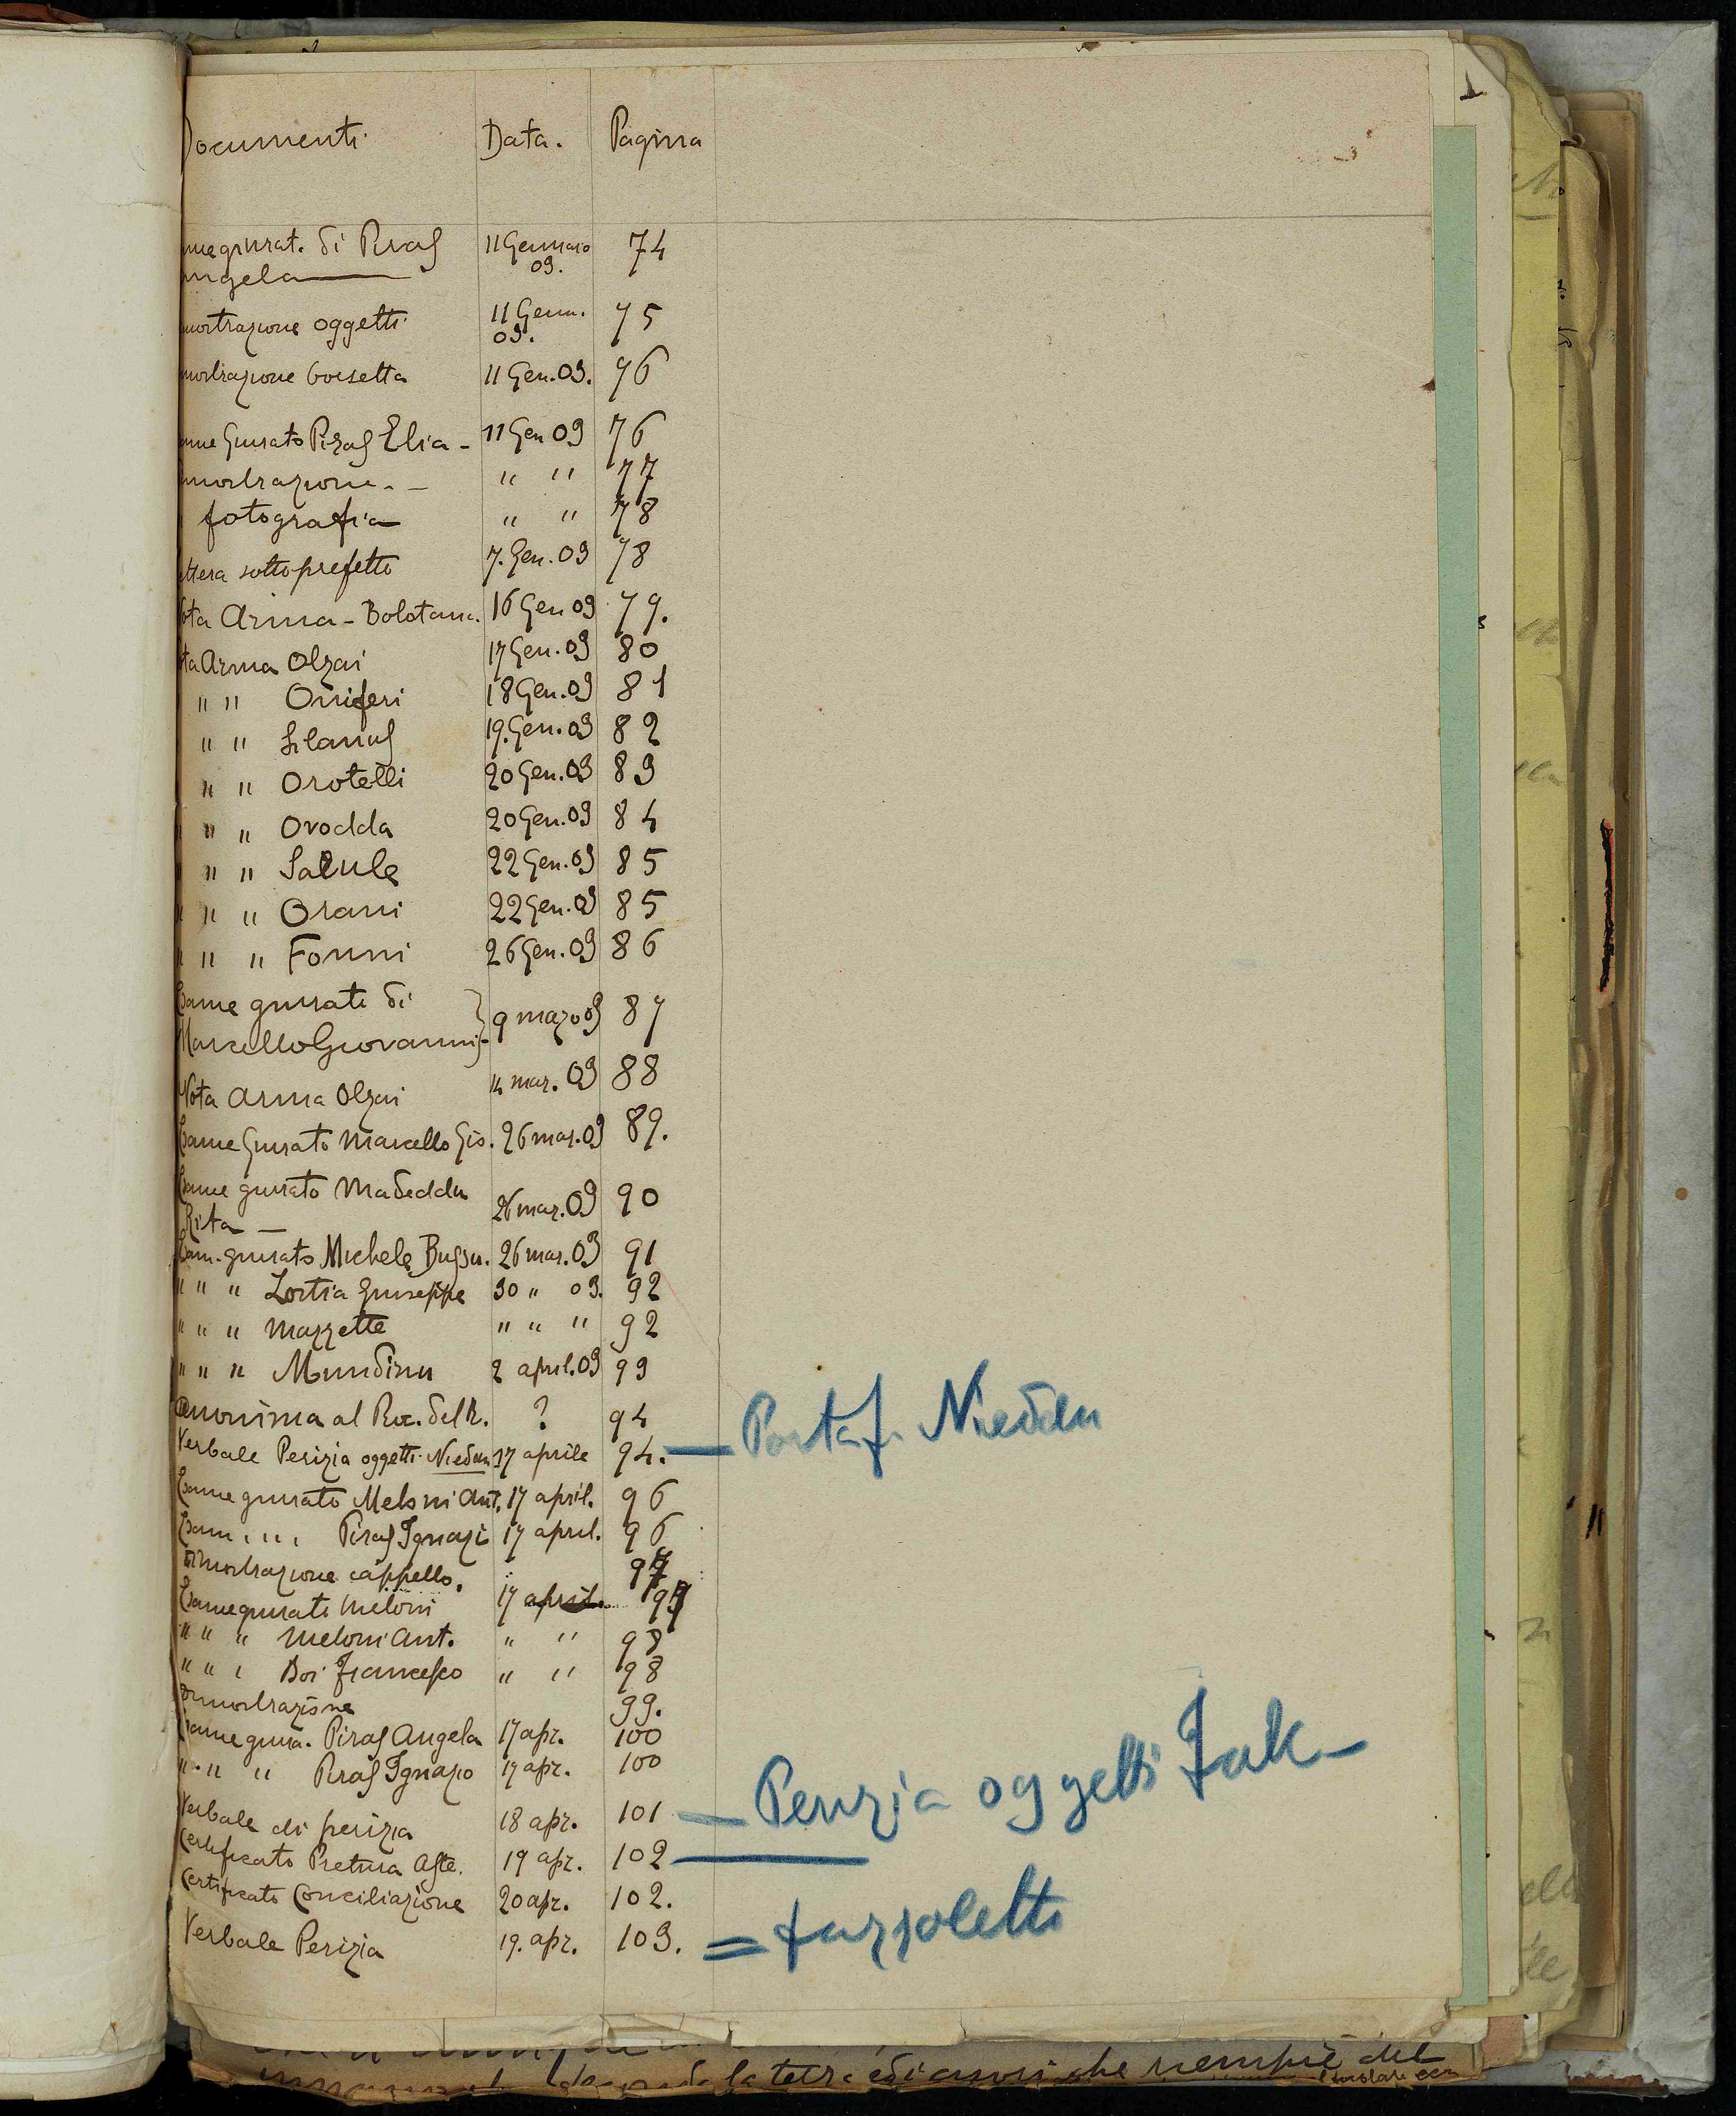 1
Documenti Data. Pagina
ame giurat. di Piras 11 Gennaio 74
Angela 09.
mostrazione oggetti 11 Genn. 75
09.
mostrazione borsetta 11 Gen. 09. 76
ame Giurato Piras Elia - 11 Gen 09 76
mostrazione. - " " 77
fotografia " " 78
ettera sottoprefetto 7. Gen. 09 78
ota Arma - Bolotana. 16 Gen 09 79.
ota Arma Olzai 17 Gen. 09 80
" " Oniferi 18 Gen. 09 81
" " Silanus 19. Gen. 09 82
" " Orotelli 20 Gen. 09 83
" " " Ovodda 20 Gen. 09 84
" " " Sarule 22 Gen. 09 85
" " " Orani 22 Gen. 09 85
" " " Fonni 26 Gen. 09 86
Esame giurati di
Marcello Giovanni 9 marzo 09 87
Nota Arma Olzai 14 mar. 09 88
Esame Giurato Marcello Gio. 26 mar. 09 89.
Esame giurato Madeddu
Rita - 26 mar. 09 90
Esam. giurato Michele Bussu. 26 mar. 09 91
" " " Zortia Giuseppe 30 " 09. 92
" " " Mazzette " " " 92
" " " Mundinu 2 april. 09 93
Anonima al Proc. del R. ? 94
Verbale Perizia oggetti Nieddu 17 aprile 94. — Portaf. Nieddu
Esame giurato Meloni Ant. 17 april. 96
Esam. " " Piras Ignazi 17 april. 96
Dimostrazione cappello. " 97
Esame giurati Meloni 17 april. 97
" " " Meloni Ant. " " 98
" " " Boi Francesco " " 98
Dimostrazione 99.
Esame giura. Piras Angela 17 apr. 100
" " " Piras Ignazio 17 apr. 100
Verbale di perizia 18 apr. 101 — Perizia oggetti
Certificato Pretura Aste. 19 apr. 102
Certificato Conciliazione 20 apr. 102.
Verbale Perizia 19. apr. 103. = fazzoletti
che